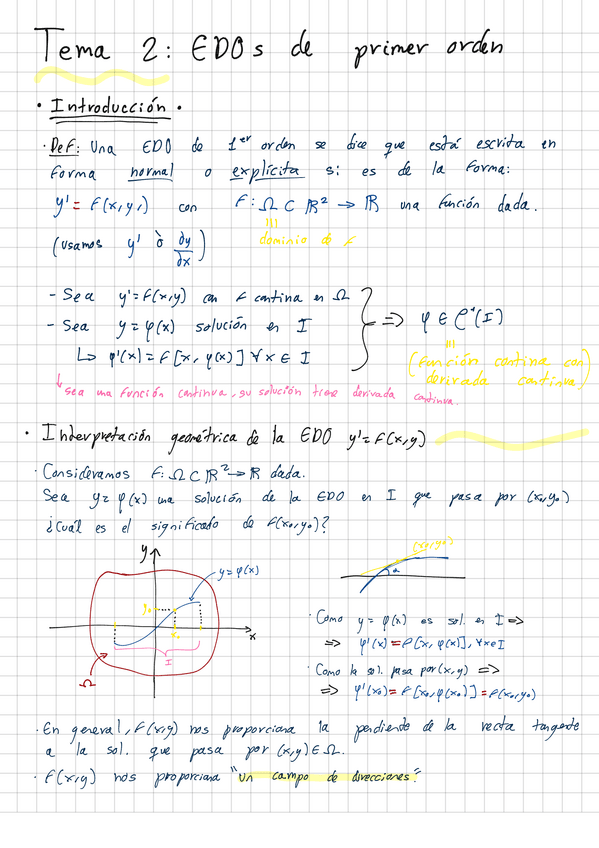 Tema 2: EDOs de primer orden
• Introducción •
· Def: Una EDO de 1er orden se dice que está escrita en
forma normal o explícita si es de la forma:
y' = f(x,y,) con f: Ω ⊂ ℝ² → ℝ una función dada.
(usamos y' ò ∂y/∂x)
dominio de f
- Sea y' = f(x,y) con f contina en Ω
- Sea y = φ(x) solución en I
↳ φ'(x) = f[x, φ(x)] ∀x ∈ I
=> φ ∈ C¹(I)
(función contina con
derivada contínua)
↳ sea una función continva, su solución tiene derivada continva.
• Interpretación geométrica de la EDO y' = f(x,y)
· Consideramos f: Ω ⊂ ℝ² → ℝ dada.
Sea y = φ(x) una solución de la EDO en I que pasa por (x₀,y₀)
¿Cuál es el significado de f(x₀,y₀)?
y
y = φ(x)
y₀
x₀
x
I
Ω
(x₀,y₀)
α
· Como y = φ(x) es sol. en I =>
=> φ'(x) = f[x, φ(x)], ∀x∈I
· Como la sol. pasa por (x,y) =>
=> φ'(x₀) = f[x₀, φ(x₀)] = f(x₀,y₀)
· En general, f(x,y) nos proporciona la pendiente de la recta tangente
a la sol. que pasa por (x,y) ∈ Ω.
· f(x,y) nos proporciona "un campo de direcciones".